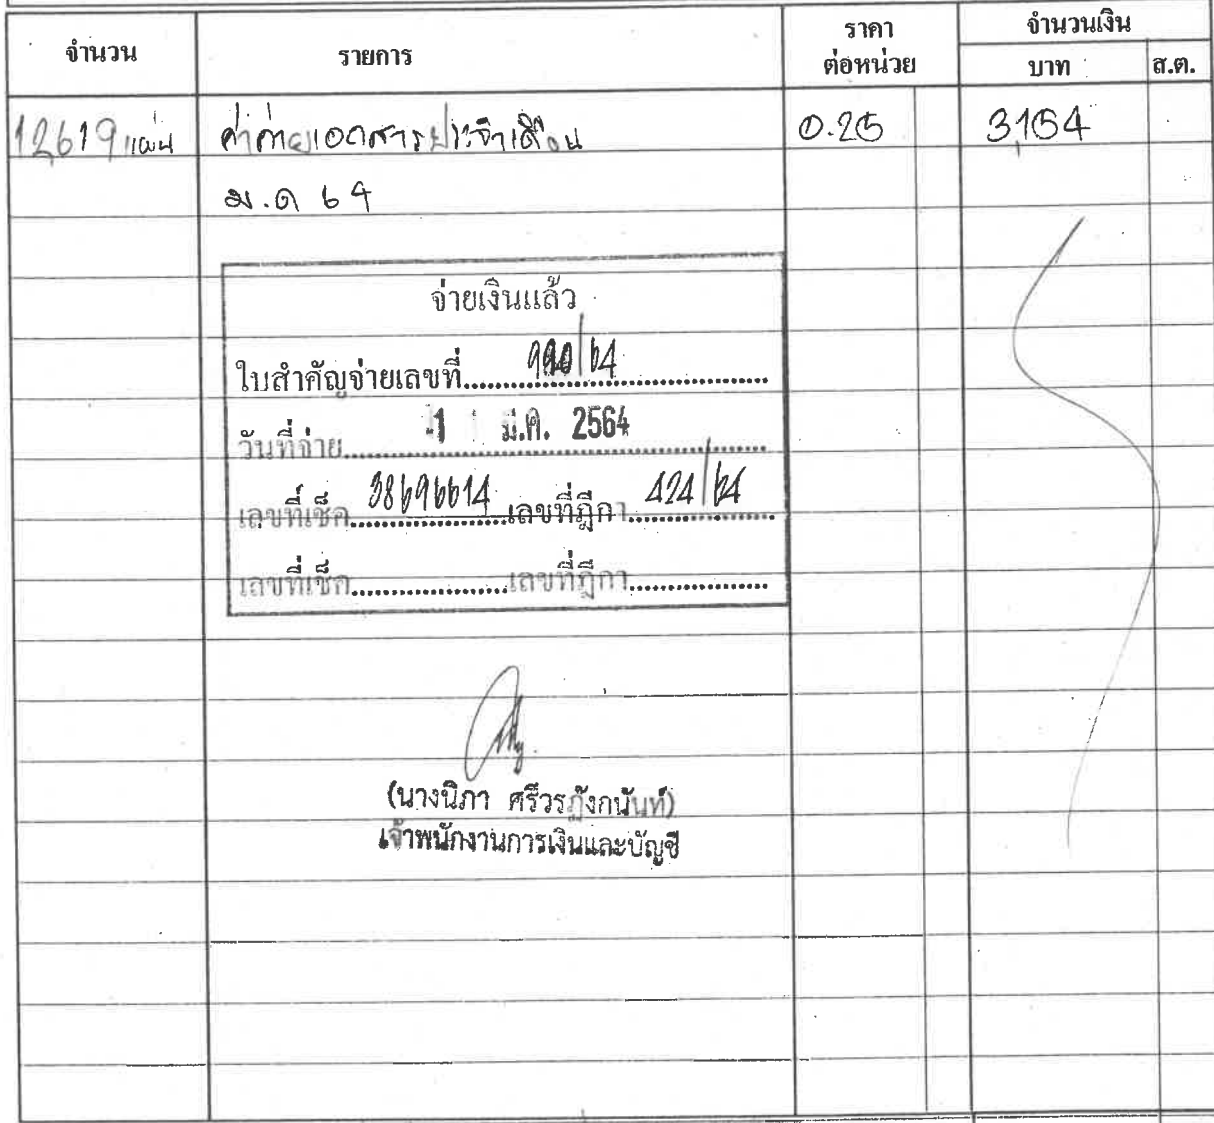 จำนวน รายการ ราคา ต่อหน่วย จำนวนเงิน
บาท ส.ต.
12,619 แผ่น ค่าถ่ายเอกสารประจำเดือน 0.25 3,154
ม.ค 64
จ่ายเงินแล้ว
ใบสำคัญจ่ายเลขที่.......... /64
วันที่จ่าย.......... 1 มี.ค. 2564
เลขที่เช็ค 38696614 เลขที่ฎีกา 424/64
เลขที่เช็ค..........เลขที่ฎีกา..........
(นางนิภา
เจ้าพนักงานการเงินและบัญชี